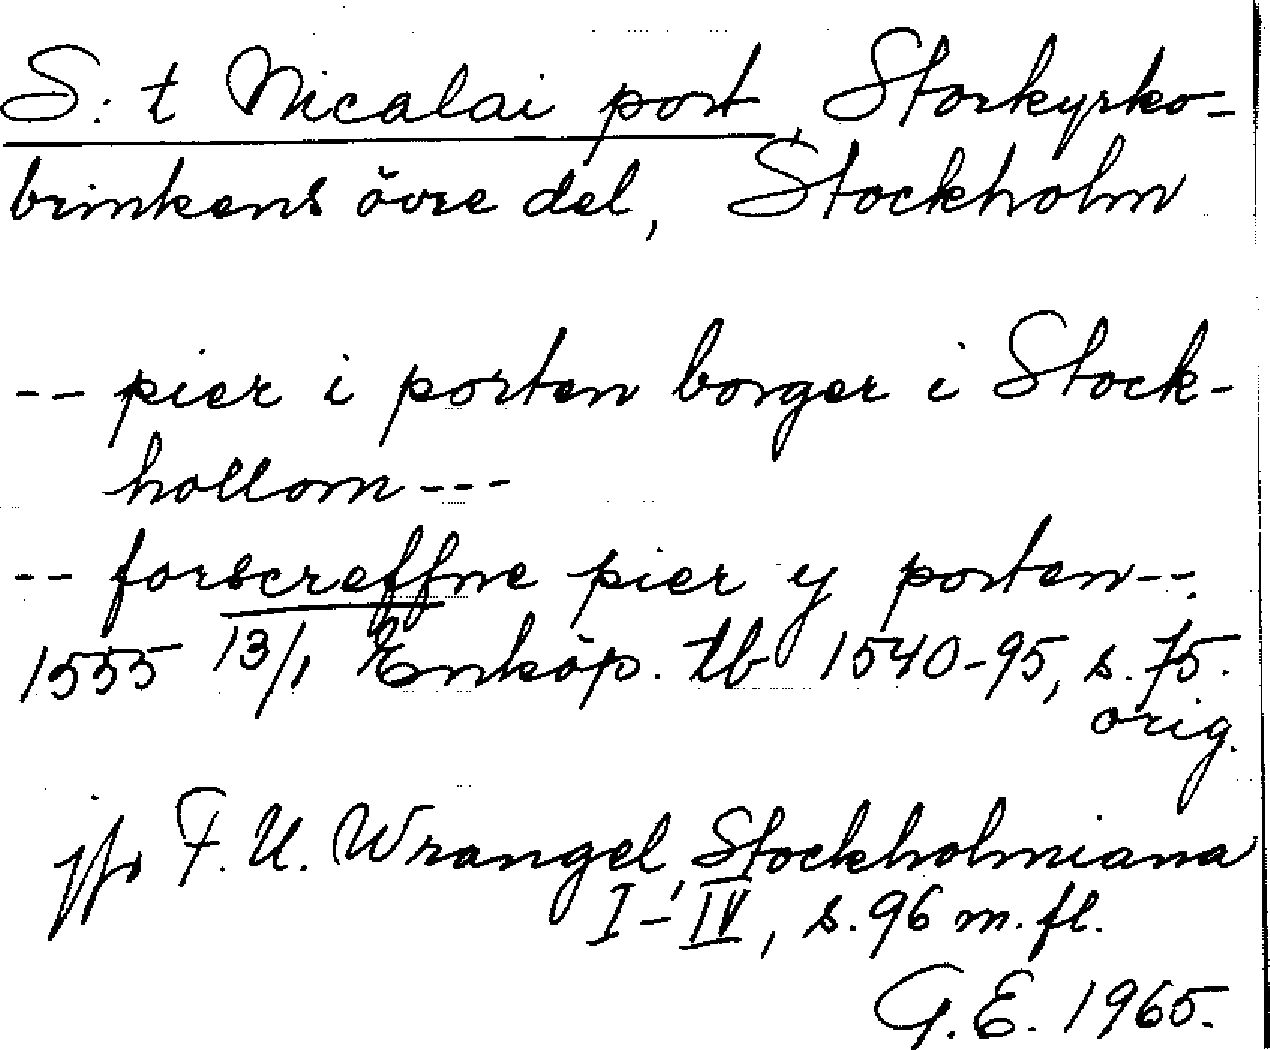 S:t Nicalai port, Storkyrko-
brinkens övre del, Stockholm
-- pier i porten borger i Stock-
hollom ---
-- forscreffne pier y porten --.
1555 13/1 Enköp. tb 1540-95, s. 75.
orig.
jfr F.U. Wrangel, Stockholmiana
I-IV, s. 96 m. fl.
G.E. 1965.